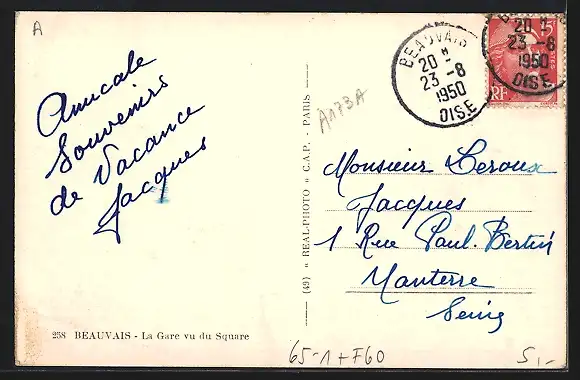 A
Amicale
Souvenirs
de Vacance
Jacques
258 BEAUVAIS - La Gare vu du Square
(49) « REAL-PHOTO » C.A.P. - PARIS
A173A
BEAUVAIS
20 H
23 -8
1950
OISE
20 H
23 -8
1950
OISE
15F
POSTES
RF
Monsieur Leroux
Jacques
1 Rue Paul. Bertin
Nanterre
Seine
65-1+F60
5,-